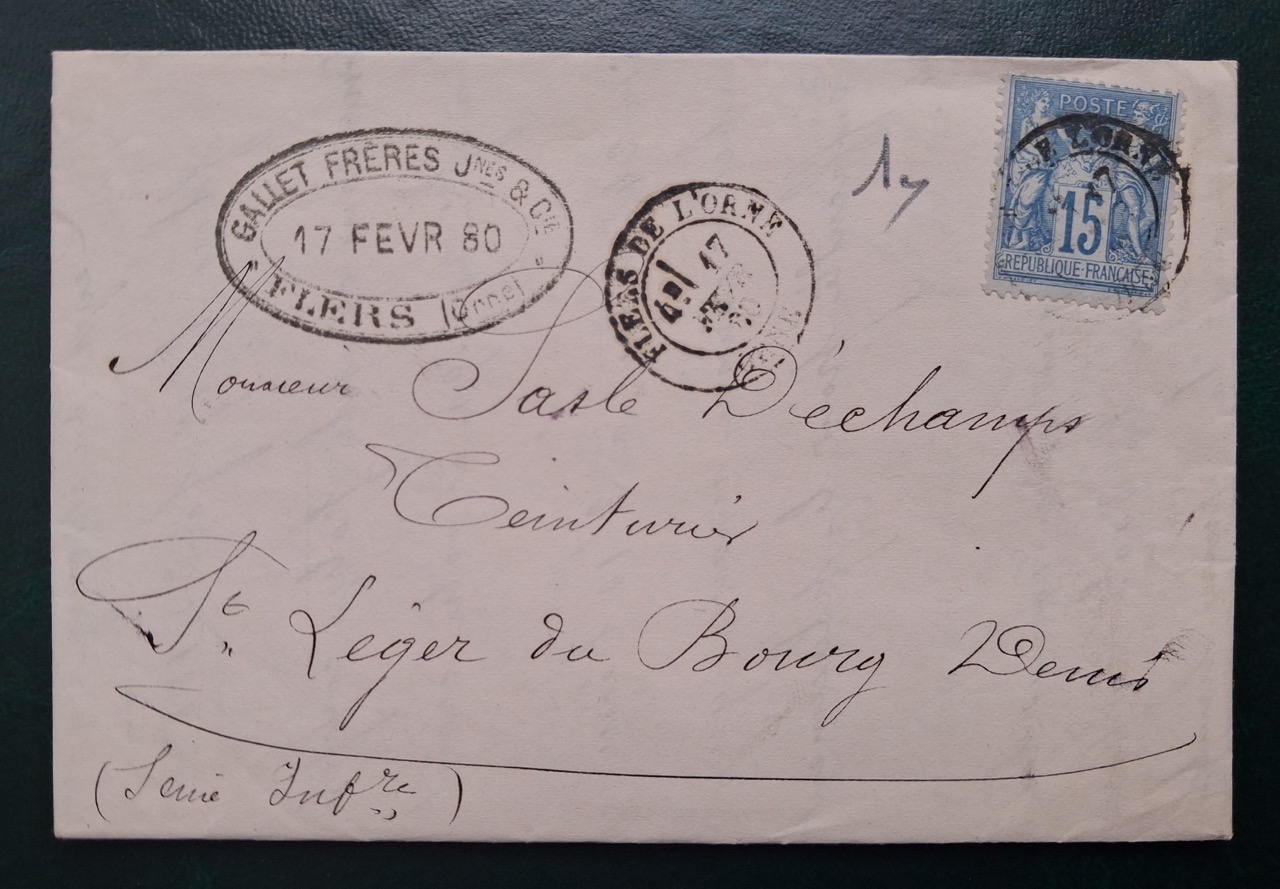 GALLET FRÈRES JNES & CIE
17 FEVR 80
FLERS (Orne)
FLERS DE L'ORNE
4E
17
POSTE
DE L'ORNE
17
15
REPUBLIQUE FRANÇAISE
Monsieur Sasle Déchamps
Teinturier
St. Léger du Bourg Denis
(Seine Infre)